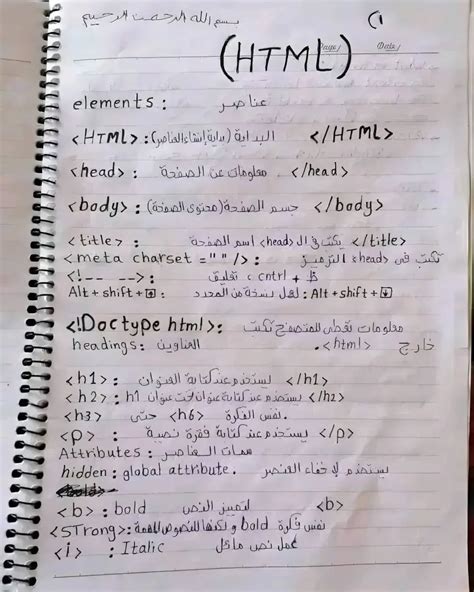 بسم الله الرحمن الرحيم (1
Page/ Date/
(HTML)
elements : عناصر
<HTML>: البداية (بداية إنشاء العناصر): </HTML>
<head> : معلومات عن الصفحة </head>
<body> : جسم الصفحة (محتوى الصفحة) </body>
<title> : يكتب في ال <head> اسم الصفحة </title>
<meta charset =" " />: تكتب في <head> الترميز
<!-- -->: تعليق cntrl +
Alt + shift + ↓ : لعمل نسخة من المحدد : Alt + shift + ↓
<!Doctype html>: معلومات تعطى للمتصفح تكتب
headings: العناوين خارج <html>.
<h1> : يستخدم عند كتابة العنوان </h1>
<h2> : يستخدم عند كتابة عنوان تحت عنوان h1 </h2>
<h3> حتى <h6> نفس الفكرة.
<p> : يستخدم عند كتابة فقرة نصية </p>
Attributes : سمات العناصر
hidden: global attribute. يستخدم لإخفاء العنصر
<b> : bold لتمييز النص <b>
<sTrong>: نفس فكرة bold و لكنها للنصوص المهمة
<i> : Italic عمل نص مائل